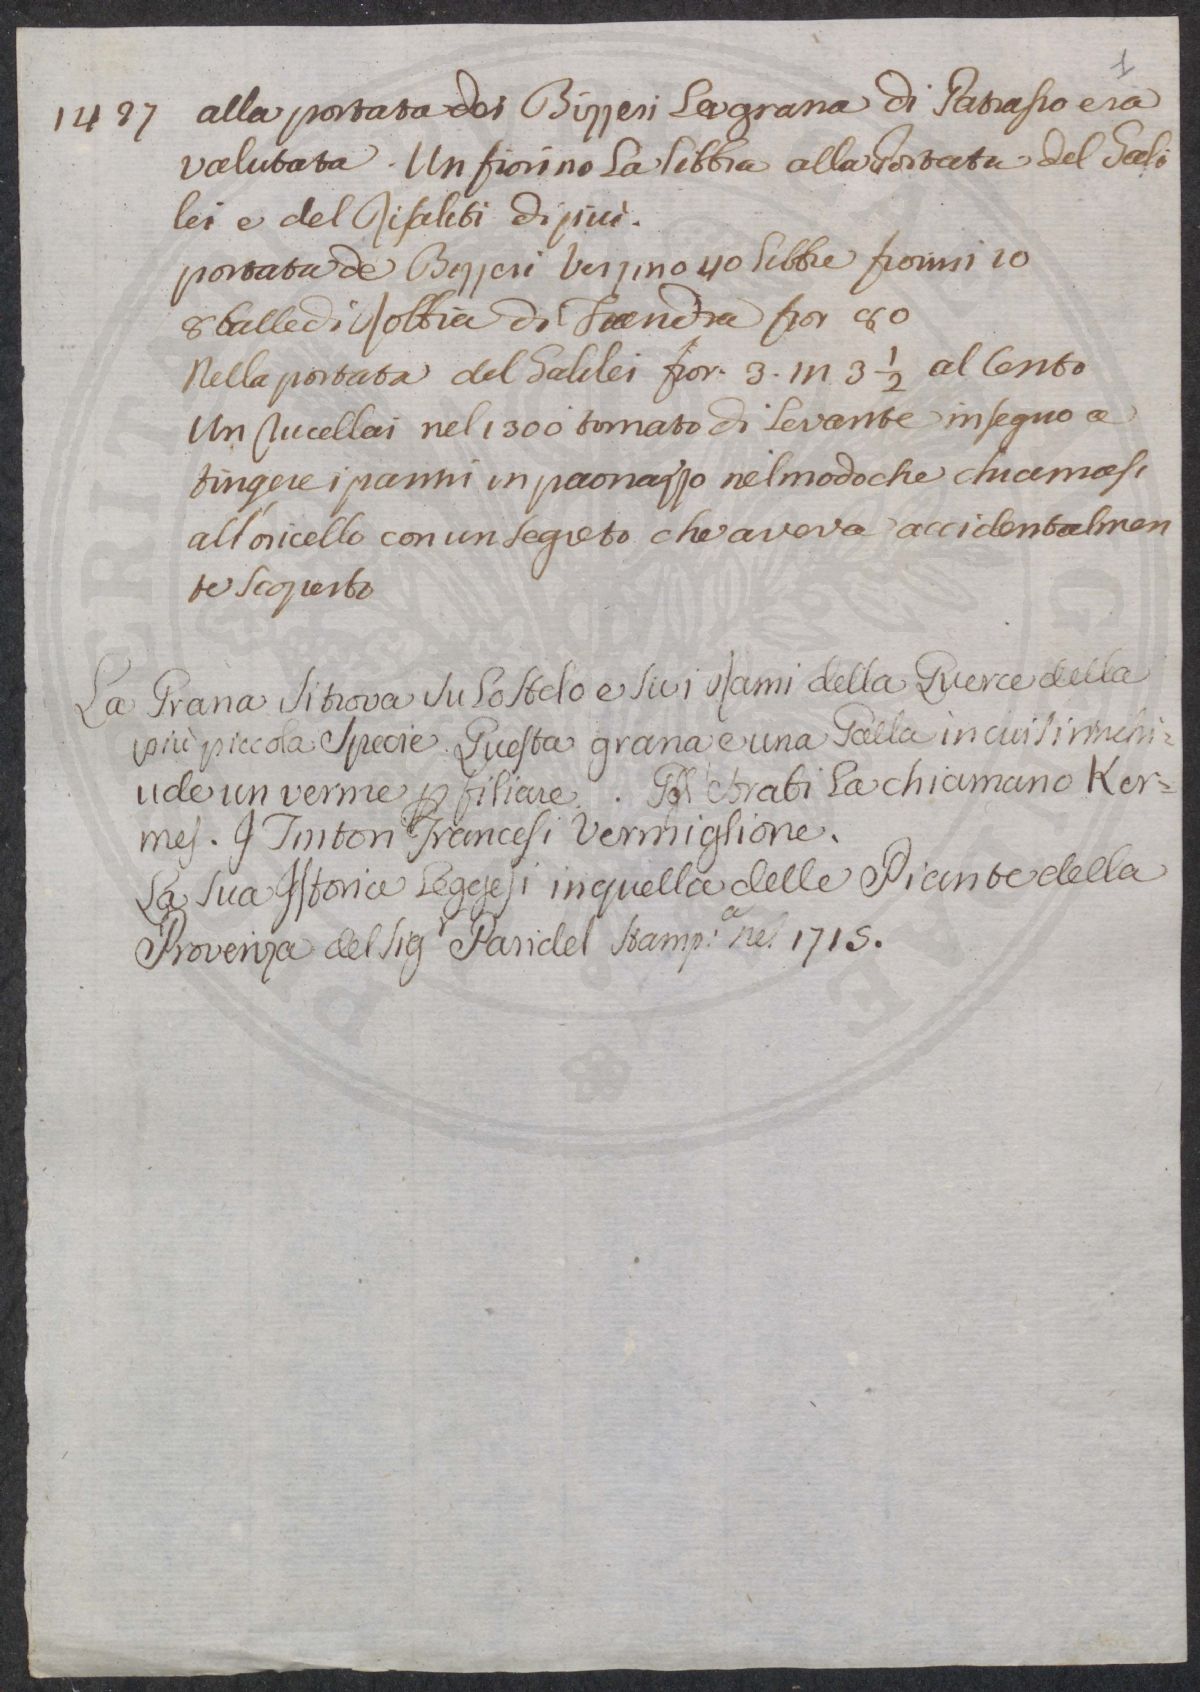 1
1427 alla portata dei Bizzeri La grana di Patrasso era
valutata . Un fiorino La libbra alla Portata del Gali
lei e del Risaliti di più.
portata de Bizzeri Verzino 40 libbre fiorini 10
8 balle di Robbia di Fiandra fior 80
Nella portata del Galilei fior. 3. in 3 1/2 al Cento
Un Rucellai nel 1300 tornato di Levante insegno a
tingere i panni in paonazzo nel modo che chiamasi
all'oricello con un segreto che aveva accidentalmen
te scoperto
La Grana si trova su lo stelo e su i Rami della Querce della
più piccola Specie. Questa grana e una Palla in cui si rinchi=
ude un verme p filiare . Gli Arabi La chiamano Ker=
mes. I Tintori Francesi Vermiglione.
La sua Istoria Leggesi in quella delle Piante della
Provenza del Sigr Paridel Stamp.a nel 1715.